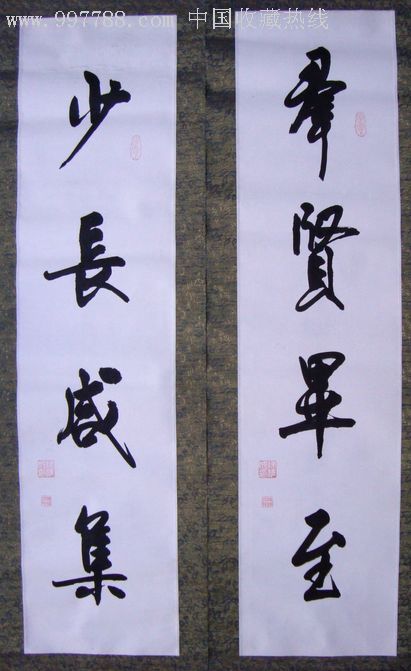 www.997788.com 中国收藏热线
羣賢畢至
少長咸集